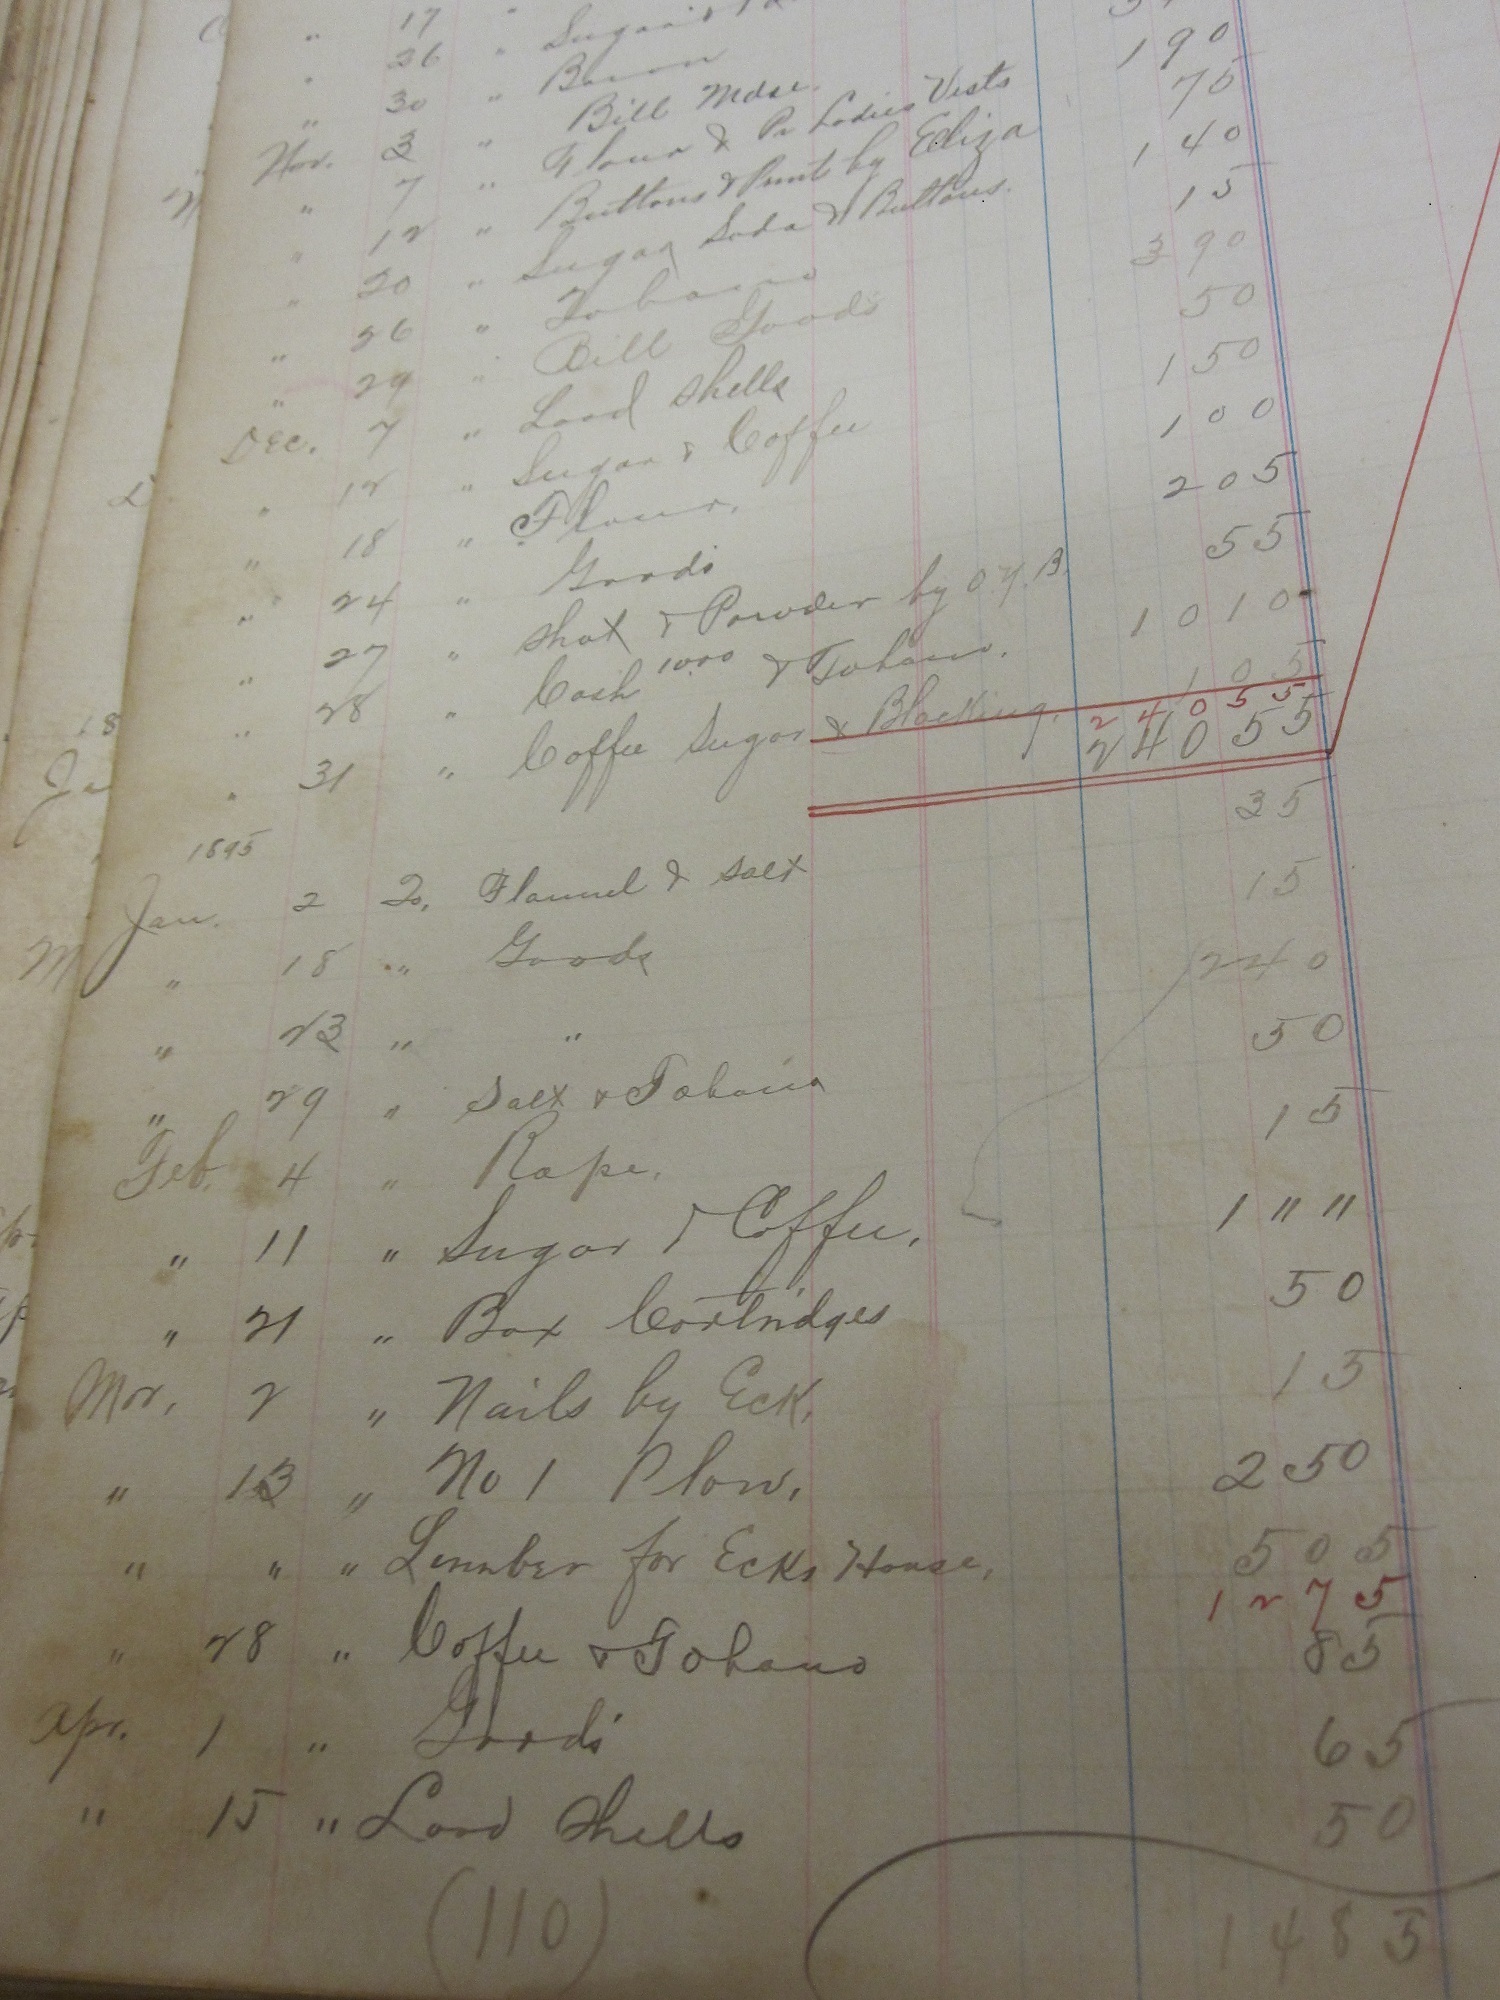 " 17 " Sugar &
" 26 " Bacon 1 90
" 30 " Bill Mdse. 75
Nov. 3 " Flour & Pr Ladies Vests 1 40
" 7 " Buttons & Print by Eliza 15
" 12 " Sugar Soda & Buttons. 3 90
" 20 " Tobacco 50
" 26 " Bill Goods 1 50
" 29 " Load Shells 1 00
Dec. 7 " Sugar & Coffee 2 05
" 12 " Flour. 55
" 18 " Goods
" 24 " Shot & Powder by O.Y.B. 10 10
" 27 " Cash 1000 & Tobacco. 1 05
" 28 " Coffee Sugar & Blacking. 240 55
" 31 " 240 55
1895 35
Jan. 2 To, Flannel & Salt 15
" 18 " Goods 2 40
" 23 " " 50
" 29 " Salt & Tobacco 15
Feb. 4 " Rope. 1 " "
" 11 " Sugar & Coffee. 50
" 21 " Box Cortridges 15
Mar. 2 " Nails by Eck. 2 50
" 13 " No 1 Plow. 5 05
" " " Lumber for Ecks House. 12 75
" 28 " Coffee & Tobacco 85
Apr. 1 " Goods 65
" 15 " Load Shells 50
(110) 14 85